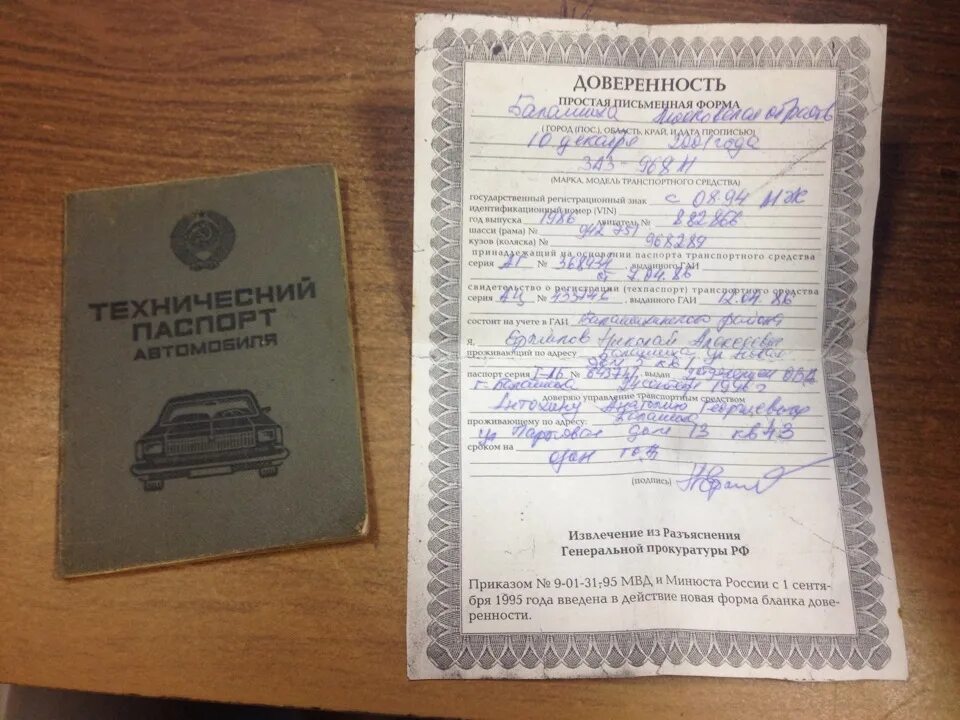 ТЕХНИЧЕСКИЙ
ПАСПОРТ
АВТОМОБИЛЯ
ДОВЕРЕННОСТЬ
ПРОСТАЯ ПИСЬМЕННАЯ ФОРМА
Балашиха Московская область
(ГОРОД (ПОС.), ОБЛАСТЬ, КРАЙ, И ДАТА ПРОПИСЬЮ)
10 декабря 2001 года
ЗАЗ-968М
(МАРКА, МОДЕЛЬ ТРАНСПОРТНОГО СРЕДСТВА)
государственный регистрационный знак с 0894 МЖ
идентификационный номер (VIN)
год выпуска 1986 двигатель № 882866
шасси (рама) № 942751
кузов (коляска) № 968289
принадлежащий на основании паспорта транспортного средства
серия АГ № 368434, выданного ГАИ
от 7.04.86
свидетельство о регистрации (техпаспорт) транспортного средства
серия АЦ № 433746, выданного ГАИ 12.04.86
состоит на учете в ГАИ Балашихинского района
Я, Николай Алексеевич
проживающий по адресу Балашиха ул
паспорт серия I-ЛБ № выдан ОВД
г. Балашиха 1976 г
доверяю управление транспортным средством
Антохину Анатолию Георгиевичу
проживающему по адресу: Балашиха
ул дом 13 кв 43
сроком на один год
(подпись)
Извлечение из Разъяснения
Генеральной прокуратуры РФ
Приказом № 9-01-31-95 МВД и Минюста России с 1 сентя-
бря 1995 года введена в действие новая форма бланка дове-
ренности.